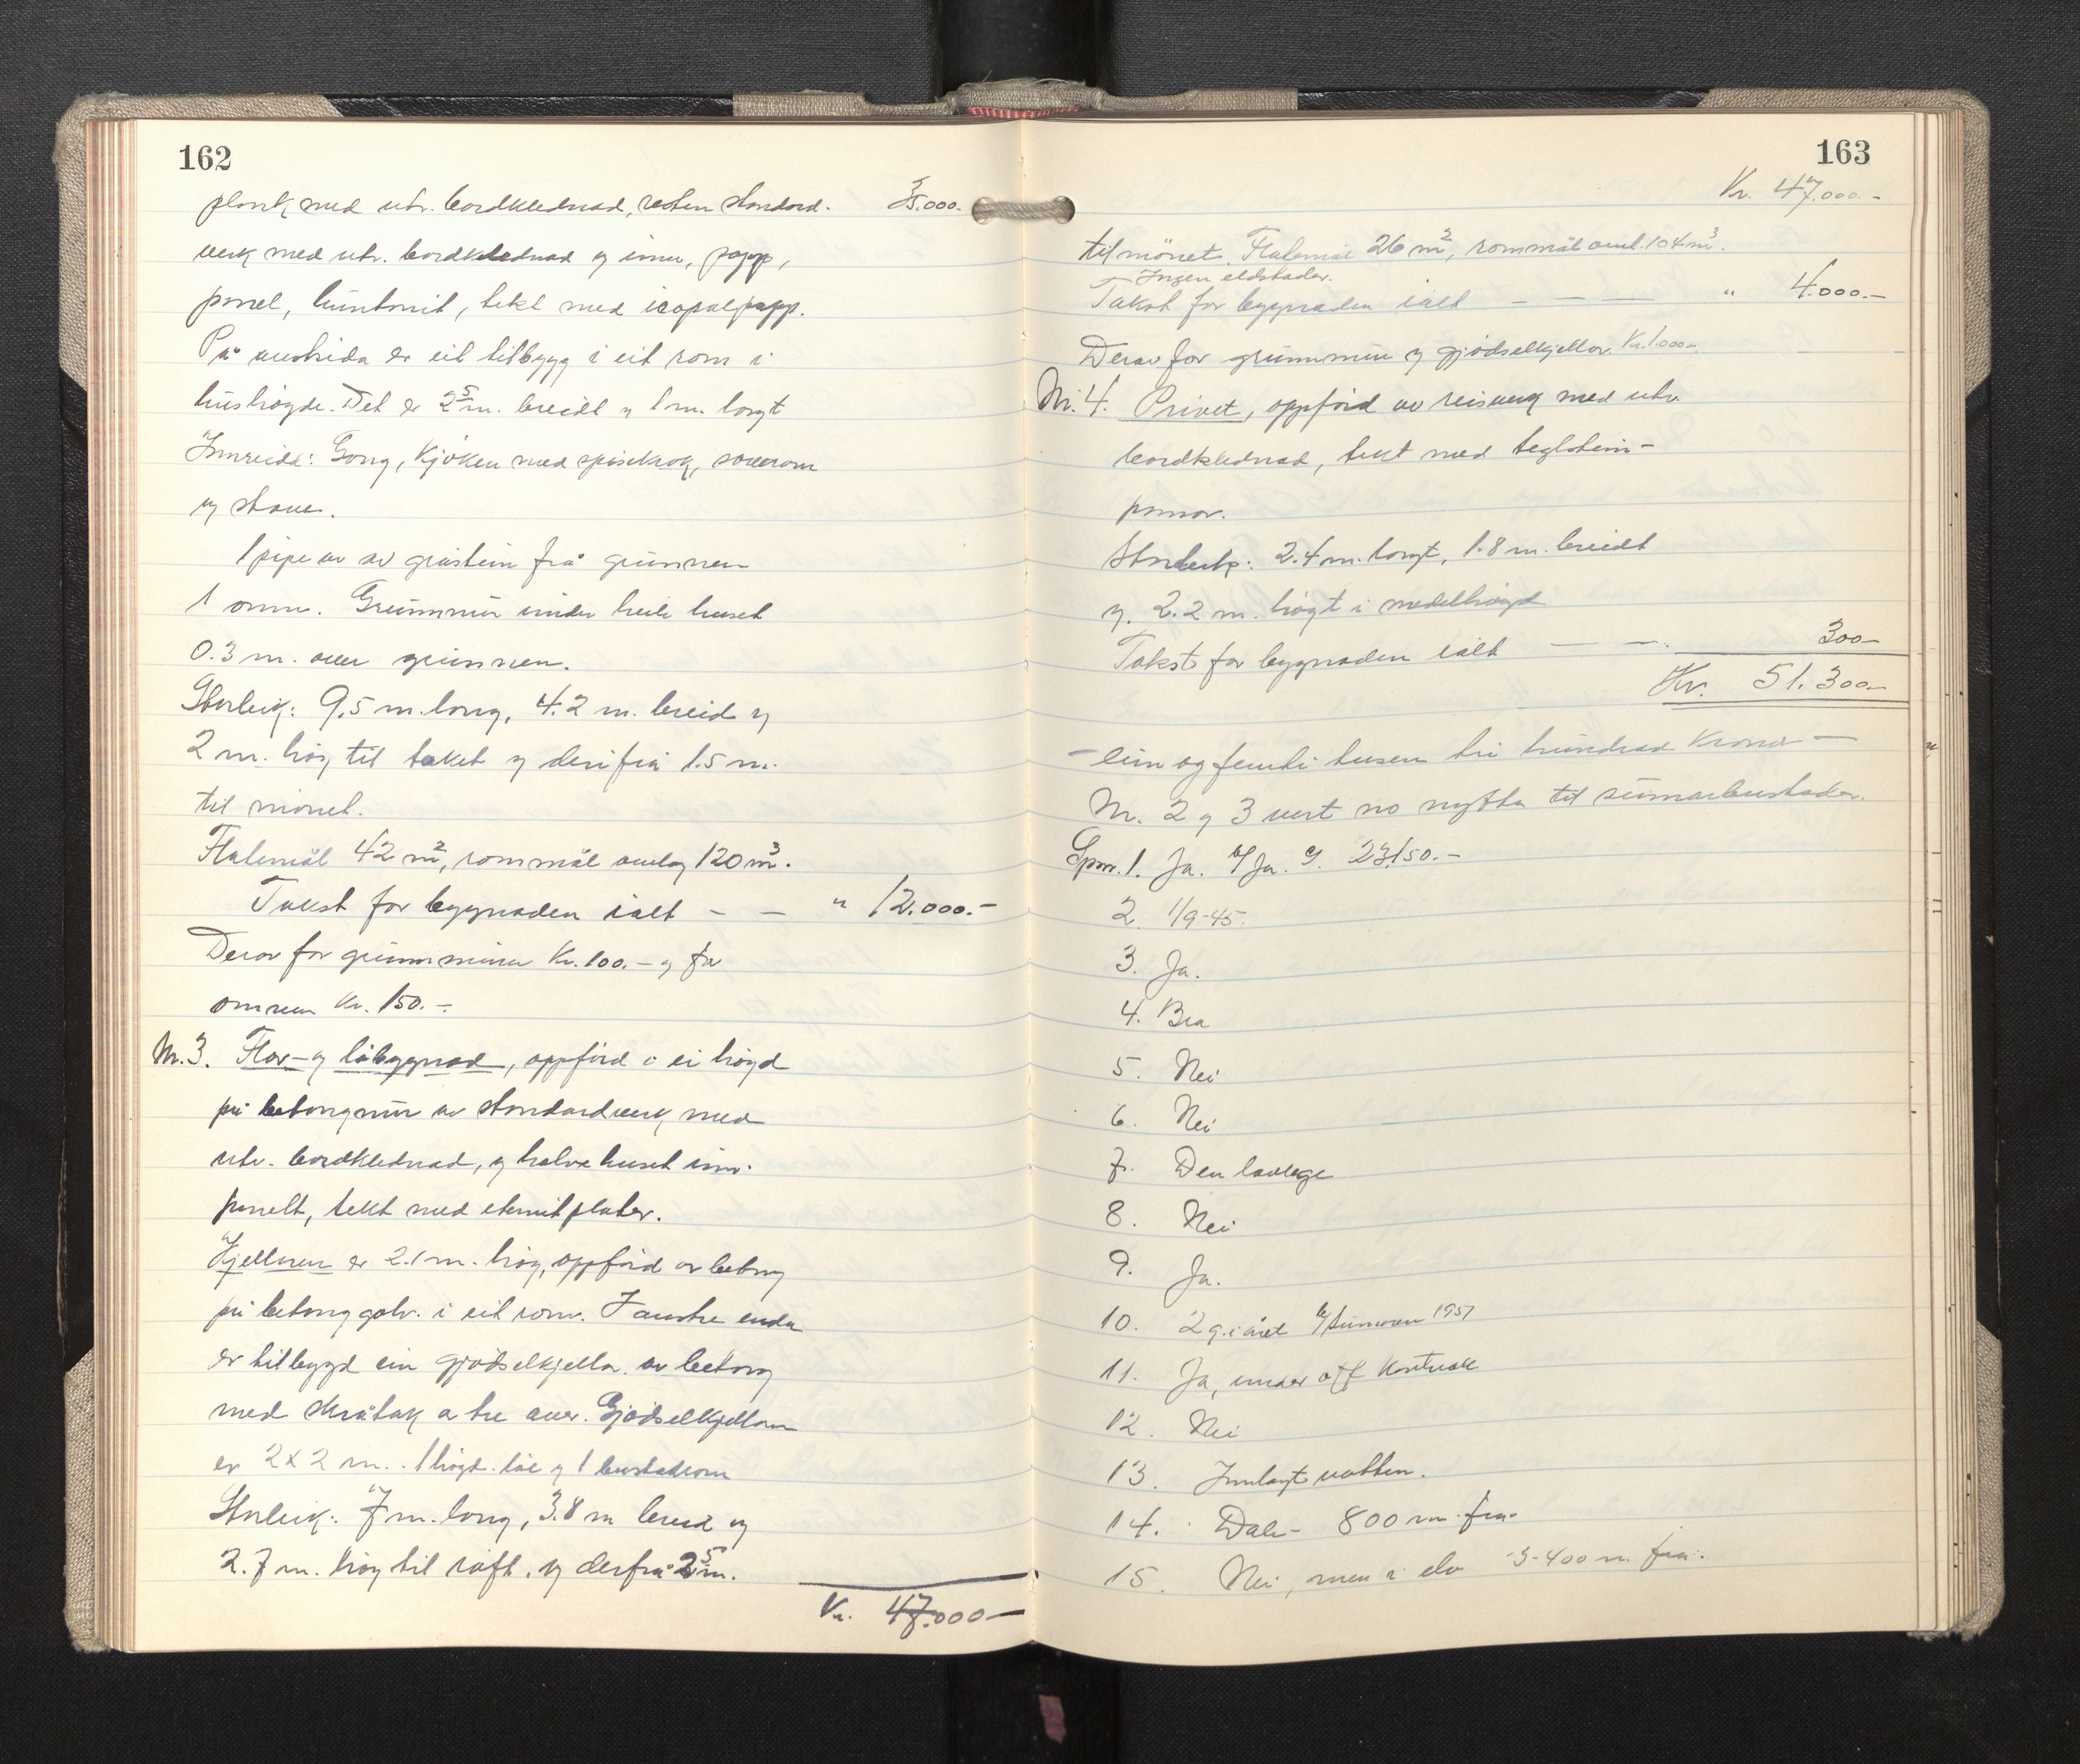 162
plank med utv. bordklednad, resten standard- 35.000.
verk med utv. bordklednad og innv. papp,
panel, huntonit, tekt med icopalpapp.
På austsida er eit tilbygg i eit rom i
hushögde. Det er 2.5 m. breidt og 1 m. langt
Innreidd: Gang, kjöken med spisekrok, soverom
og stove.
1 pipe av gråstein frå grunnen
1 omn. Grunnmur under heile huset
0.3 m. over grunnen.
Storleik: 9,5 m. lang, 4.2 m. breid og
2 m. höy til taket og derifrå 1.5 m.
til mönet.
Flatemål 42 m², rommål omlag 120 m³.
Takst for bygnaden ialt - - " 12.000.-
Derav for grunnmuren Kr. 100.- og for
omnen Kr. 150.-
Nr. 3. Flor- og löbygnad, oppförd i ei högd
på betongmur av standardverk med
utv. bordklednad, og halve huset innv.
panelt, tekt med eternitplater.
Kjellaren er 2.1 m. höy, oppförd av betong
på betonggolv i eit rom. I austre enda
er tilbygd ein gjödselkjellar av betong
med skråtak av tre over. Gjödselkjellaren
er 2 x 2 m. 1 högd. löe og 1 bustadrom
Storleik: 7 m. lang, 3.8 m breid og
2.7 m. höy til raft, og derfrå 2.5 m.
Kr. 47.000—
163
Kr. 47.000.-
til mönet. Flatemål 26 m², rommål oml. 104 m³.
Ingen eldstader.
Takst for bygnaden ialt — — — " 4.000.—
Derav for grunnmur og gjödselkjellar. Kr. 1.000.-
Nr. 4. Privet, oppförd av reisverk med utv.
bordklednad, tekt med teglstein-
pannor.
Storleik: 2.4 m. langt, 1.8 m. breidt
og 2.2 m. högt i medelhögd
Takst for bygnaden ialt — — 300—
Kr. 51.300—
— ein og femti tusen tri hundrad kroner —
Nr. 2 og 3 vert no nytta til sumarbustader.
Spm. 1. Ja. b/ Ja. c/. 23,150.-
2. 1/9-45.
3. Ja.
4. Bra
5. Nei
6. Nei
7. Den lovlege
8. Nei
9. Ja.
10. 2 g. i året b/ Sumaren 1957
11. Ja, under off kontroll
12. Nei
13. Innlagt vatten.
14. Dale- 800 m. frå-
15. Nei, men i elv 3-400 m. frå.